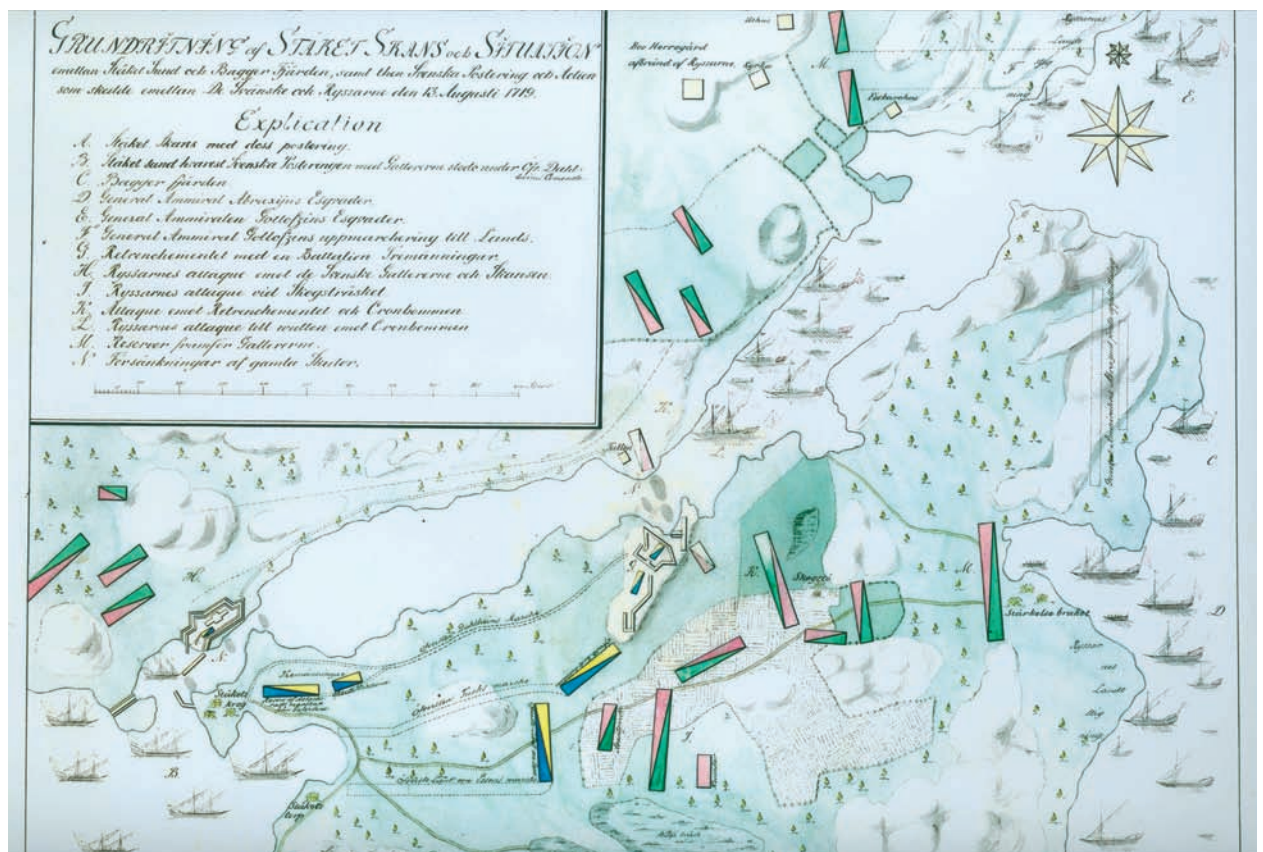 GRUNDRITNING af STÄKET SKANS och SITUATION
emellan Stäket Sund och Bagger Fjärden, samt then Svenska Postering och Action
som skedde emellan De Svänske och Ryssarne den 13. Augusti 1719.
Explication
A. Stäket Skans med dess postering.
B. Stäket sund hvarest Svenska Posteringen med Gallererne stodo under Öfr. Dahl-
C. Bagger fjärden
D. General Ammiral Abraxins Esqvader.
E. General Ammiralen Gollofzins Esqvader.
F. General Ammiral Gollofzins uppmarchering till Lands.
G. Retrenchementet med en Battalion Tremänningar.
H. Ryssarnes attaque emot de Svänske Gallererne och Skansen.
J. Ryssarnes attaque vid Skogsträsket
K. Attaque emot Retrenchementet och Cronbommen
L. Ryssarnes attaque till watten emot Cronbommen
M. Reserver framför Gallererne.
N. Försänkningar af gamle Skutor.
Boo Herregård
afbränd af Ryssarne.
Kyrka
M.
F
E
K.
L
C
H.
K.
Skogstorp
M.
Stärkelse bruket
D
Ryssar
nes
Landt
stig
ning
N.
Stäkets
krog
Tremänningar
Öfverste Dahlheims Marche
Öfverstens Fuchs marche
J.
B
Stäkets
torp